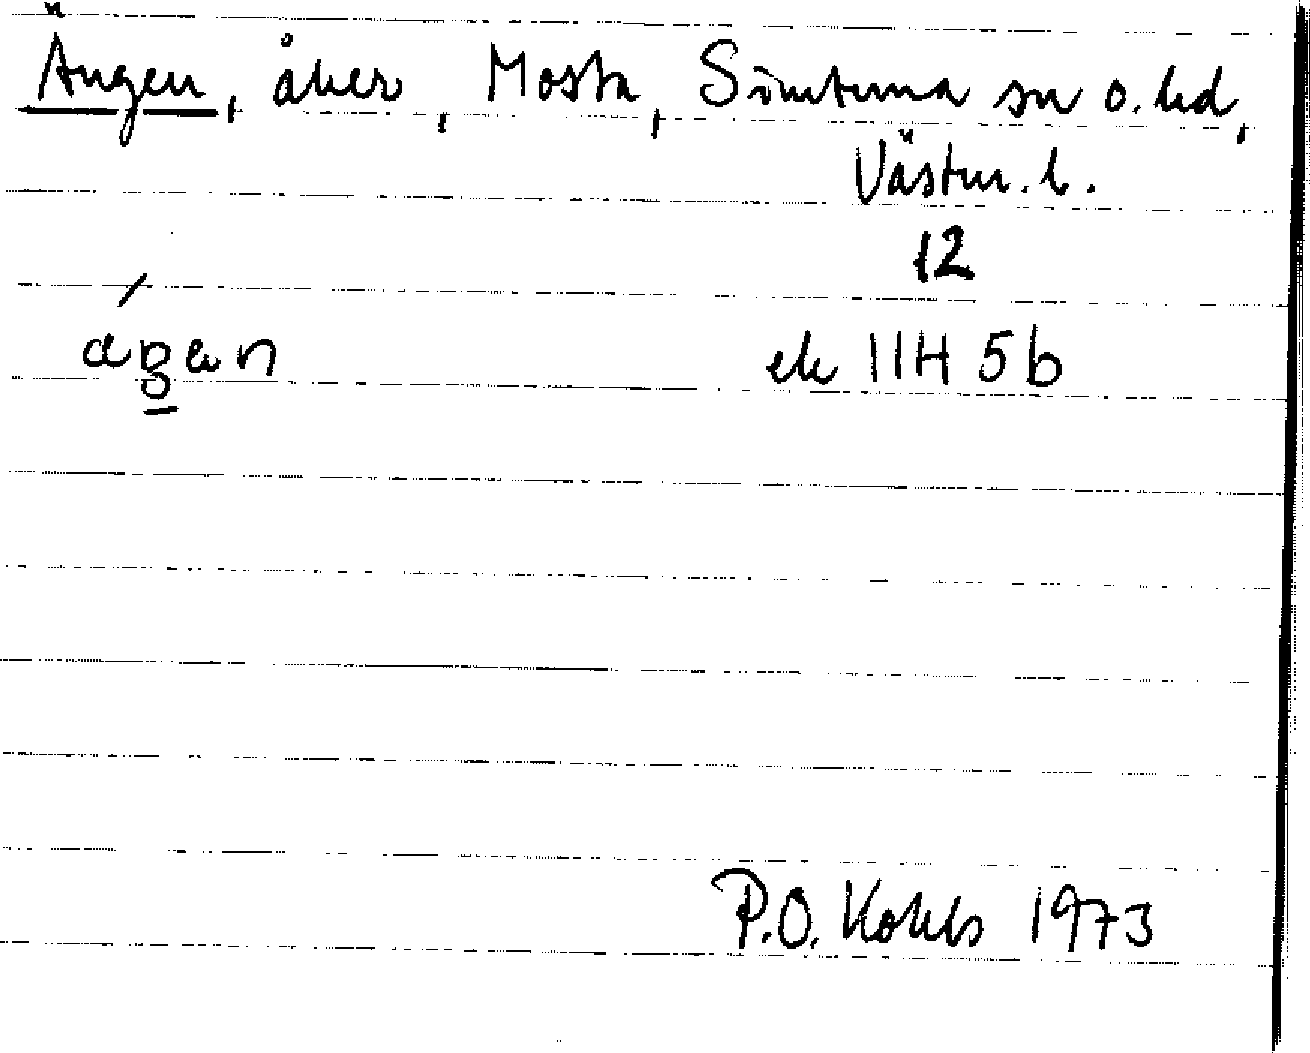 Ängen, åker, Mosta, Simtuna sn o. hd,
Västm. l.
12
ágan ek 11H 5b
P.O. Kohls 1973